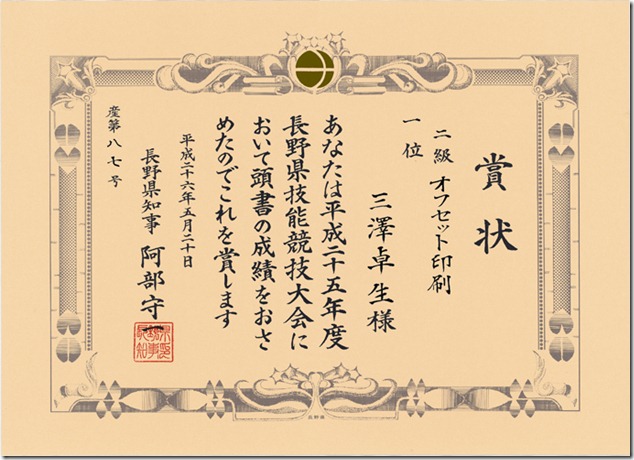 賞状
二級 オフセット印刷
一位
三澤卓生様
あなたは平成二十五年度
長野県技能競技大会に
おいて頭書の成績をおさ
めたのでこれを賞します
平成二十六年五月二十日
長野県知事 阿部守一
産第八七号